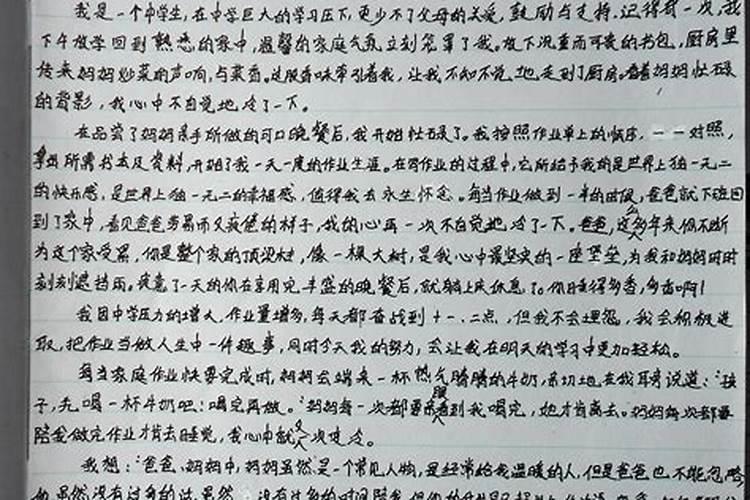 我是一个中学生，在中学巨大的学习压下，更少不了父母的关爱，鼓励与支持。记得有一次，我
下午放学回到熟悉的家中，温馨的家庭气氛立刻笼罩了我。放下沉重而可贵的书包，厨房里
传来妈妈炒菜的声响，与菜香。这股香味牵引着我，让我不知不觉地走到了厨房。看着妈妈忙碌
的背影，我心中不自觉地冷了一下。
在品尝了妈妈亲手所做的可口晚餐后，我开始忙碌了。我按照作业单上的顺序，一一对照，
拿出所需书本及资料，开始了我一天一度的作业生涯。在写作业的过程中，它所给予我的是世界上独一无二
的快乐感，是世界上独一无二的幸福感，值得我去永生怀念。每当作业做到一半的时候，爸爸就下班回
到了家中，看见爸爸劳累而又疲倦的样子，我的心再一次不自觉地冷了一下。爸爸，这么多年来你不断
为这个家受累，你是整个家的顶梁柱，像一棵大树，是我心中最坚实的一座堡垒，为我和妈妈时时
刻刻遮挡雨。疲惫了一天的你在享用完丰盛的晚餐后，就躺上床休息了。你睡得多香，多香啊！
我因中学压力的增大，作业量增多，每天都奋战到十一、二点，但我不会埋怨，我会积极进
取，把作业当做人生中一件趣事，同时今天我的努力，会让我在明天的学习中更加轻松。
每当家庭作业快要完成时，妈妈会端来一杯热气腾腾的牛奶，亲切地在我耳旁说道：“孩
子，先喝一杯牛奶吧！喝完再做。”妈妈每一次都要亲眼看到我喝完，她才肯离去。妈妈每次都要
陪我做完作业才肯去睡觉，我心中就又一次变冷。
我想：“爸爸、妈妈中，妈妈虽然是一个常见人物，是经常给我温暖的人，但是爸爸也不能忽略
他虽然没有过多的话，虽然 没有过多的时间陪我，但他的